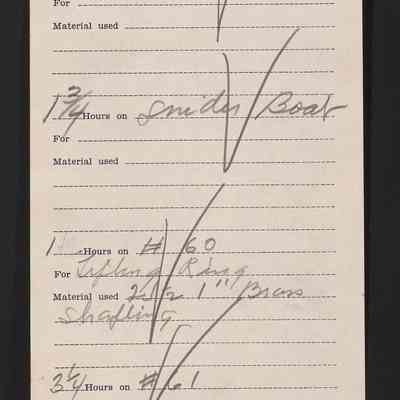 For
Material used
1 3/4 Hours on Snider Boat
For
Material used
1 Hours on # 60
For Lifting Ring
Material used 1" Brass
Shafting
3 1/4 Hours on # 61